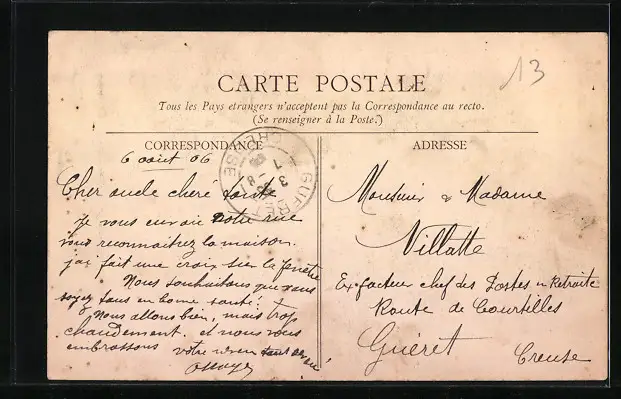 13
CARTE POSTALE
Tous les Pays etrangers n'acceptent pas la Correspondance au recto.
(Se renseigner à la Poste.)
CORRESPONDANCE
6 août 06
Cher oncle chere tante
Je vous envoie votre rue
vous reconnaitrez la maison.
jai fait une croix sur la fenêtre
Nous souhaitons que vous
soyez tous en bonne santé.
Nous allons bien, mais trop
chaudement. et nous vous
embrassons votre neveu tout dévoué
ADRESSE
Monsieur & Madame
Villatte
Ex facteur chef des Postes en Retraite
Route de Courtilles
Guéret
Creuse
GUERET
CREUSE